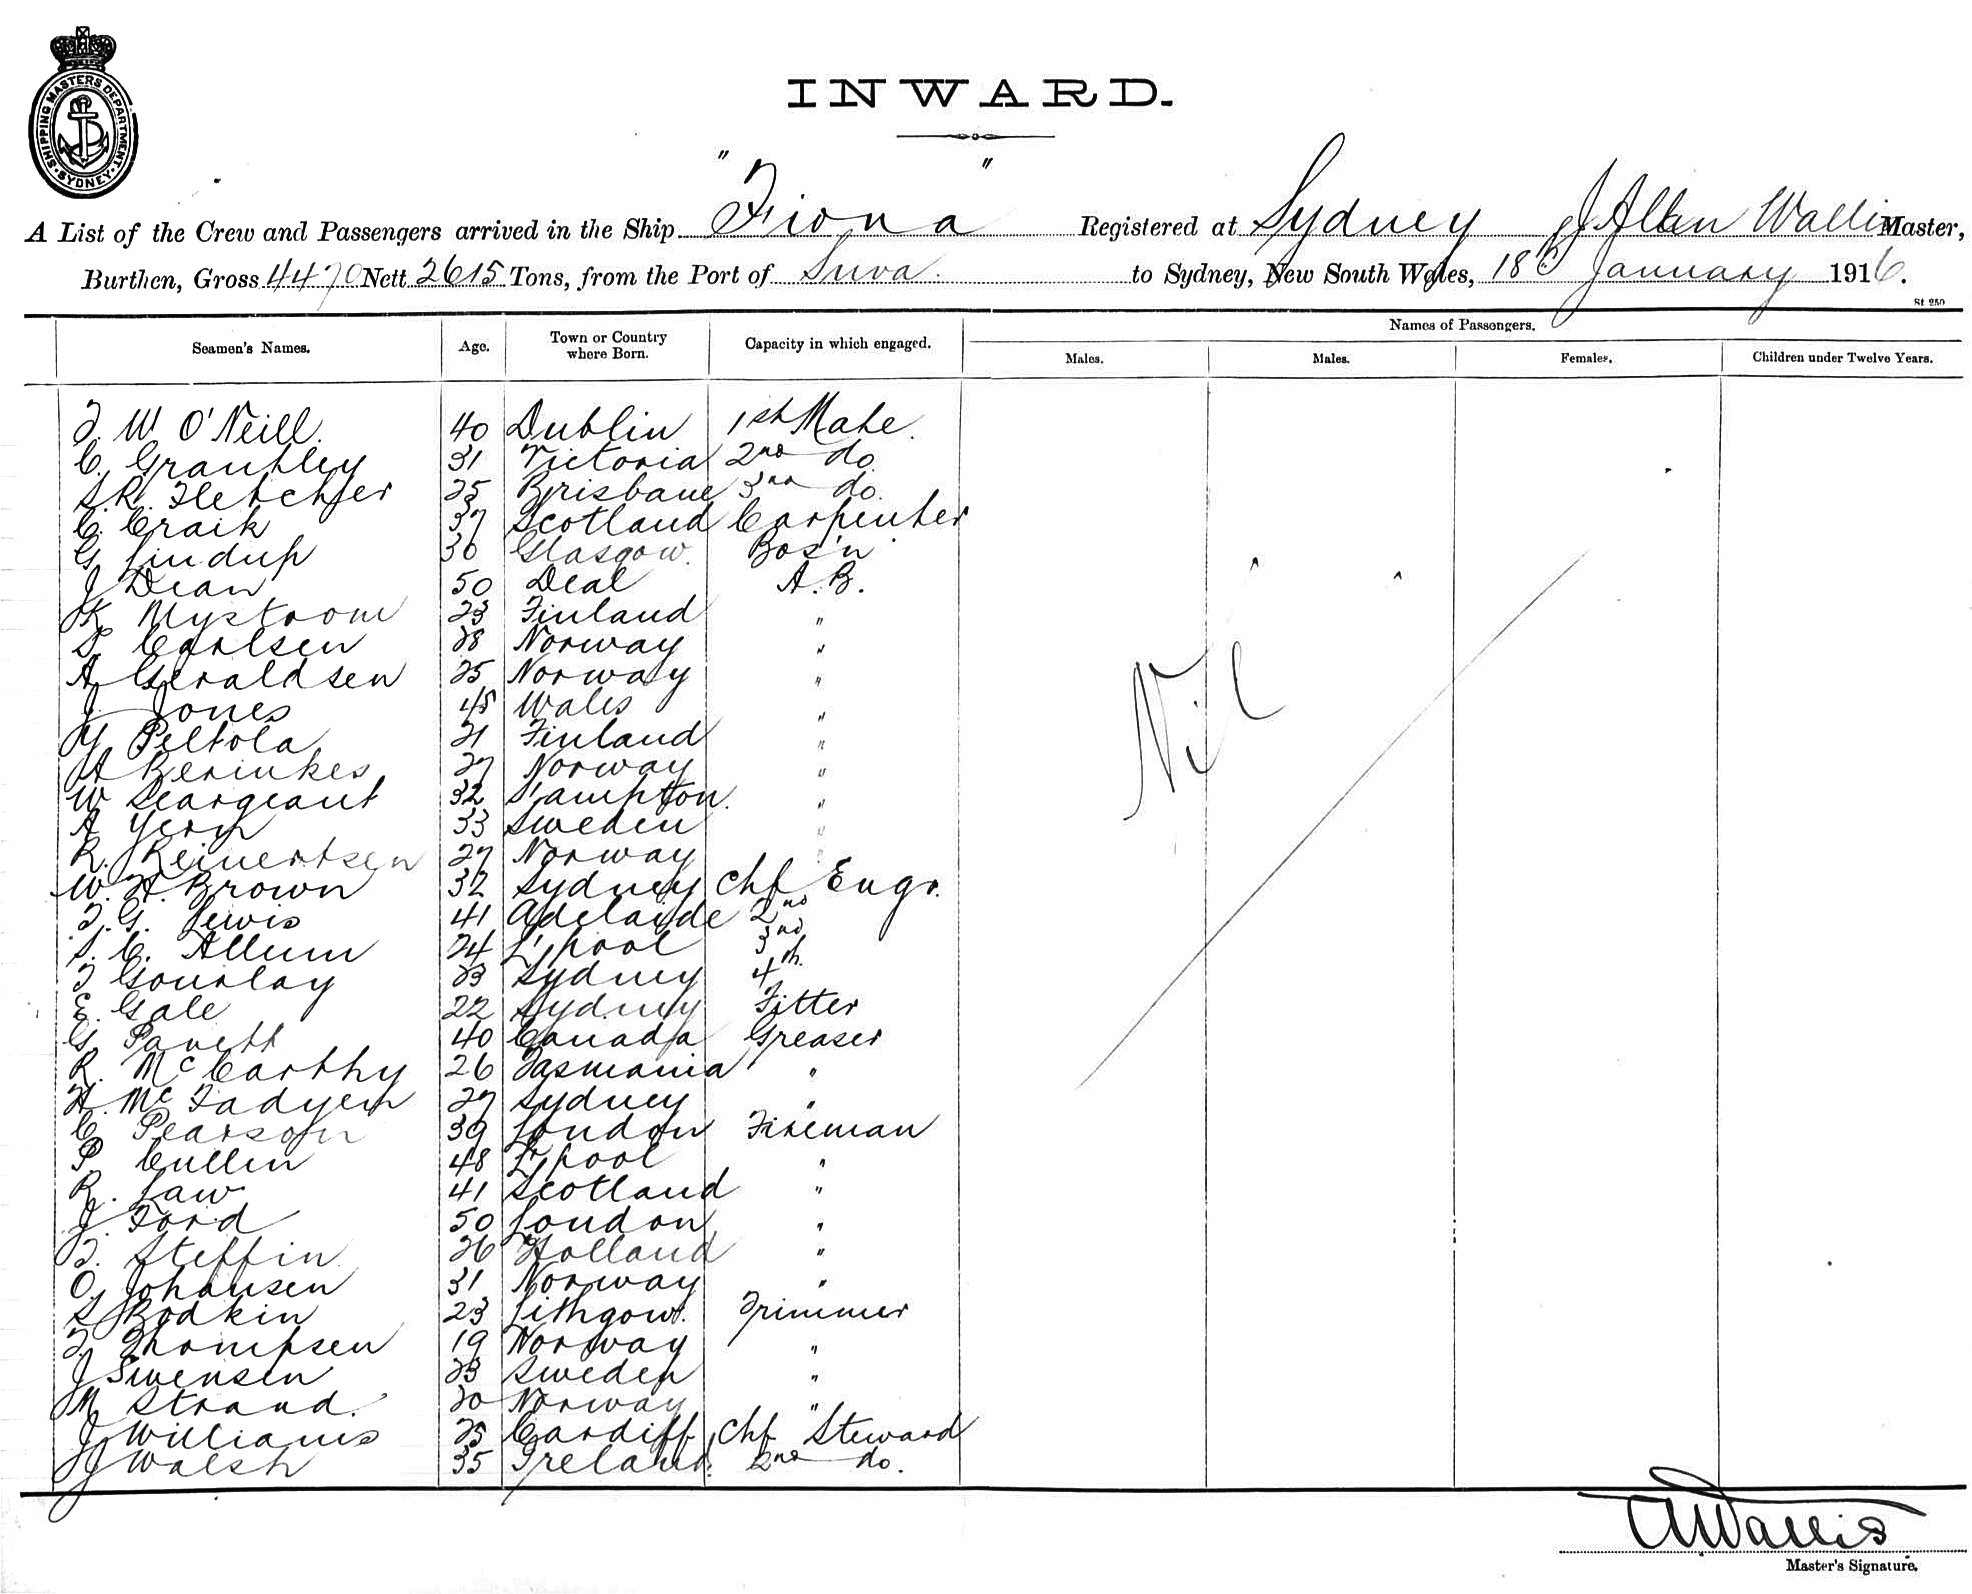 SHIPPING MASTERS DEPARTMENT
SYDNEY
INWARD.
A List of the Crew and Passengers arrived in the Ship "Fiona" Registered at Sydney J Allan Wallis Master,
Burthen, Gross 4470 Nett 2615 Tons, from the Port of Suva. to Sydney, New South Wales, 18th January 1916.
St 250
Names of Passengers.
Seamen's Names. Age. Town or Country where Born. Capacity in which engaged. Males. Males. Females. Children under Twelve Years.
W O'Neill. 40 Dublin 1st Mate.
C. Grantley 31 Victoria 2nd do.
S.R. Fletcher 25 Brisbane 3rd do.
C. Craik 37 Scotland Carpenter
G Lindup 36 Glasgow. Bos'n
J Dean 50 Deal A.B.
K Mystrom 23 Finland "
S. Carlsen 28 Norway "
A Geraldsen 25 Norway "
J. Jones 45 Wales "
Y Peltola 21 Finland "
H 27 Norway "
W Seargeant 32 S'ampton. "
A 33 Sweden "
R. Reinertsen 27 Norway "
W. H. Brown 32 Sydney Chf Engr.
T.G. Lewis 41 Adelaide 2nd
S. C. Allum 24 L'pool 3rd
T Gourlay 23 Sydney 4th
E. Gale 22 Sydney Fitter
G. Pavett 40 Canada Greaser
R. McCarthy 26 Tasmania "
H. McFadyen 27 Sydney "
C Pearson 39 London Fireman
P. Cullen 48 L'pool "
R. Law 41 Scotland "
J. Ford 50 London "
T. Steffin 26 Holland "
O. Johansen 31 Norway "
S Bodkin 23 Lithgow. Trimmer
T. Thompsen 19 Norway "
J Swensen 23 Sweden "
M Strand. 20 Norway "
J Williams 25 Cardiff, Chf Steward
J Walsh 35 Ireland. 2nd do.
Nil
A Wallis
Master's Signature.